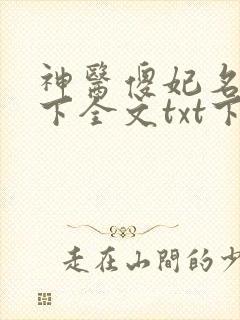 神醫傻妃名
下全文txt下
走在山間的少